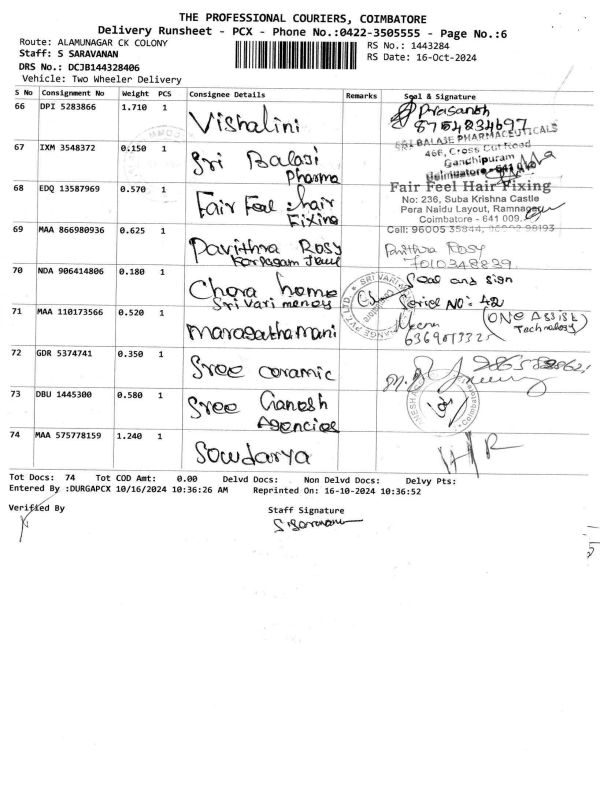 THE PROFESSIONAL COURIERS, COIMBATORE
Delivery Runsheet - PCX - Phone No.:0422-3505555 - Page No.:6
Route: ALAMUNAGAR CK COLONY
RS No.: 1443284
Staff: S SARAVANAN
RS Date: 16-Oct-2024
DRS No.: DCJB144328406
Vehicle: Two Wheeler Delivery
S No Consignment No Weight PCS Consignee Details Remarks Seal & Signature
66 DPI 5283866 1.710 1 Vishalini Prasanth
8754834697
67 IXM 3548372 0.150 1 Sri Balaji
Pharma
SRI BALAJE PHARMACEUTICALS
466, Cross Cut Road
Gandhipuram
68 EDQ 13587969 0.570 1 Fair Feel Hair
Fixing
Fair Feel Hair Fixing
No: 236, Suba Krishna Castle
Pera Naidu Layout, Ramnagar
Coimbatore - 641 009.
Cell: 96005 35844,
69 MAA 866980936 0.625 1 Pavithra Rosy
Pavithra Rosy
7010348839
70 NDA 906414806 0.180 1 Chora home
Sri Vari money
Seal and sign
Series NO: 42
71 MAA 110173566 0.520 1 Maragathamani
Meena
(ONE ASSIST
Technology)
72 GDR 5374741 0.350 1 Sree ceramic
73 DBU 1445300 0.580 1 Sree Ganesh
Agencies
74 MAA 575778159 1.240 1 Sowdarya
Tot Docs: 74 Tot COD Amt: 0.00 Delvd Docs: Non Delvd Docs: Delvy Pts:
Entered By :DURGAPCX 10/16/2024 10:36:26 AM Reprinted On: 16-10-2024 10:36:52
Verified By
Staff Signature
S. Saravanan